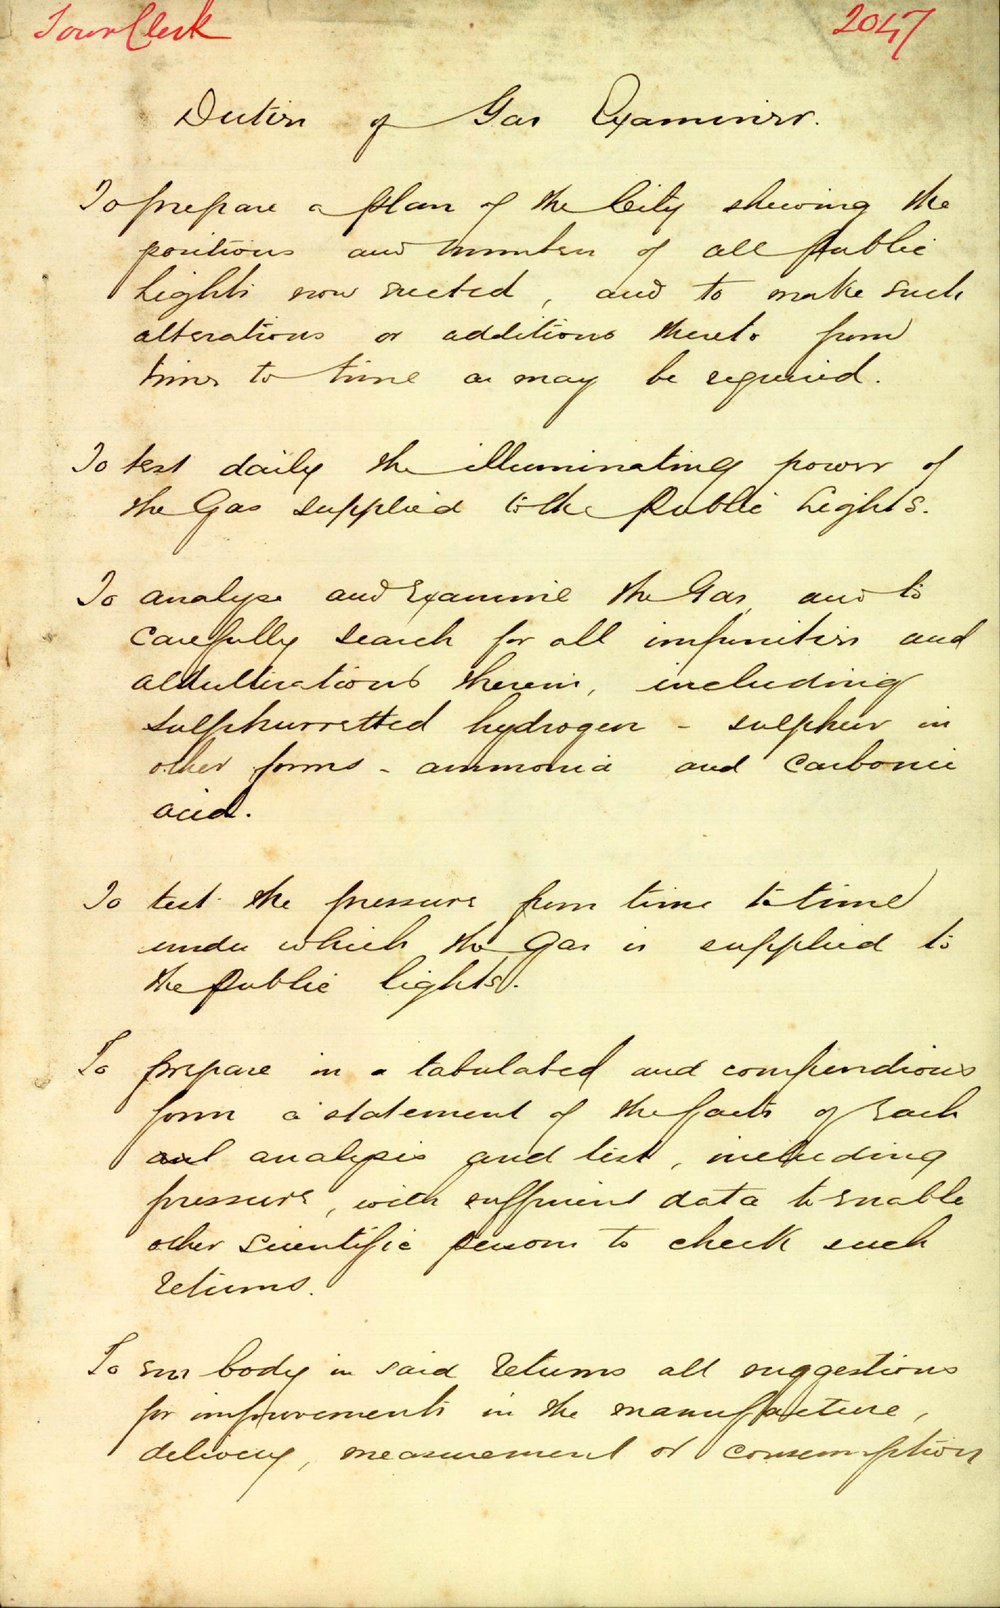 Town Clerk 2047
Duties of Gas Examiner.
To prepare a plan of the City shewing the
positions and numbers of all public
Lights now erected, and to make such
alterations or additions thereto from
time to time as may be required.
To test daily the illuminating power of
the Gas supplied to the Public Lights.
To analyse and examine the Gas, and to
carefully search for all impurities and
adulterations therein, including
Sulphurretted hydrogen - sulphur in
other forms - ammonia and Carbonic
acid.
To test the pressure from time to time
under which the Gas is supplied to
the Public lights.
To prepare in a tabulated and compendious
form a statement of the facts of each
analysis and test, including
pressure, with sufficient data to enable
other scientific persons to check such
returns.
To embody in said returns all suggestions
for improvements in the manufacture,
delivery, measurement or consumption